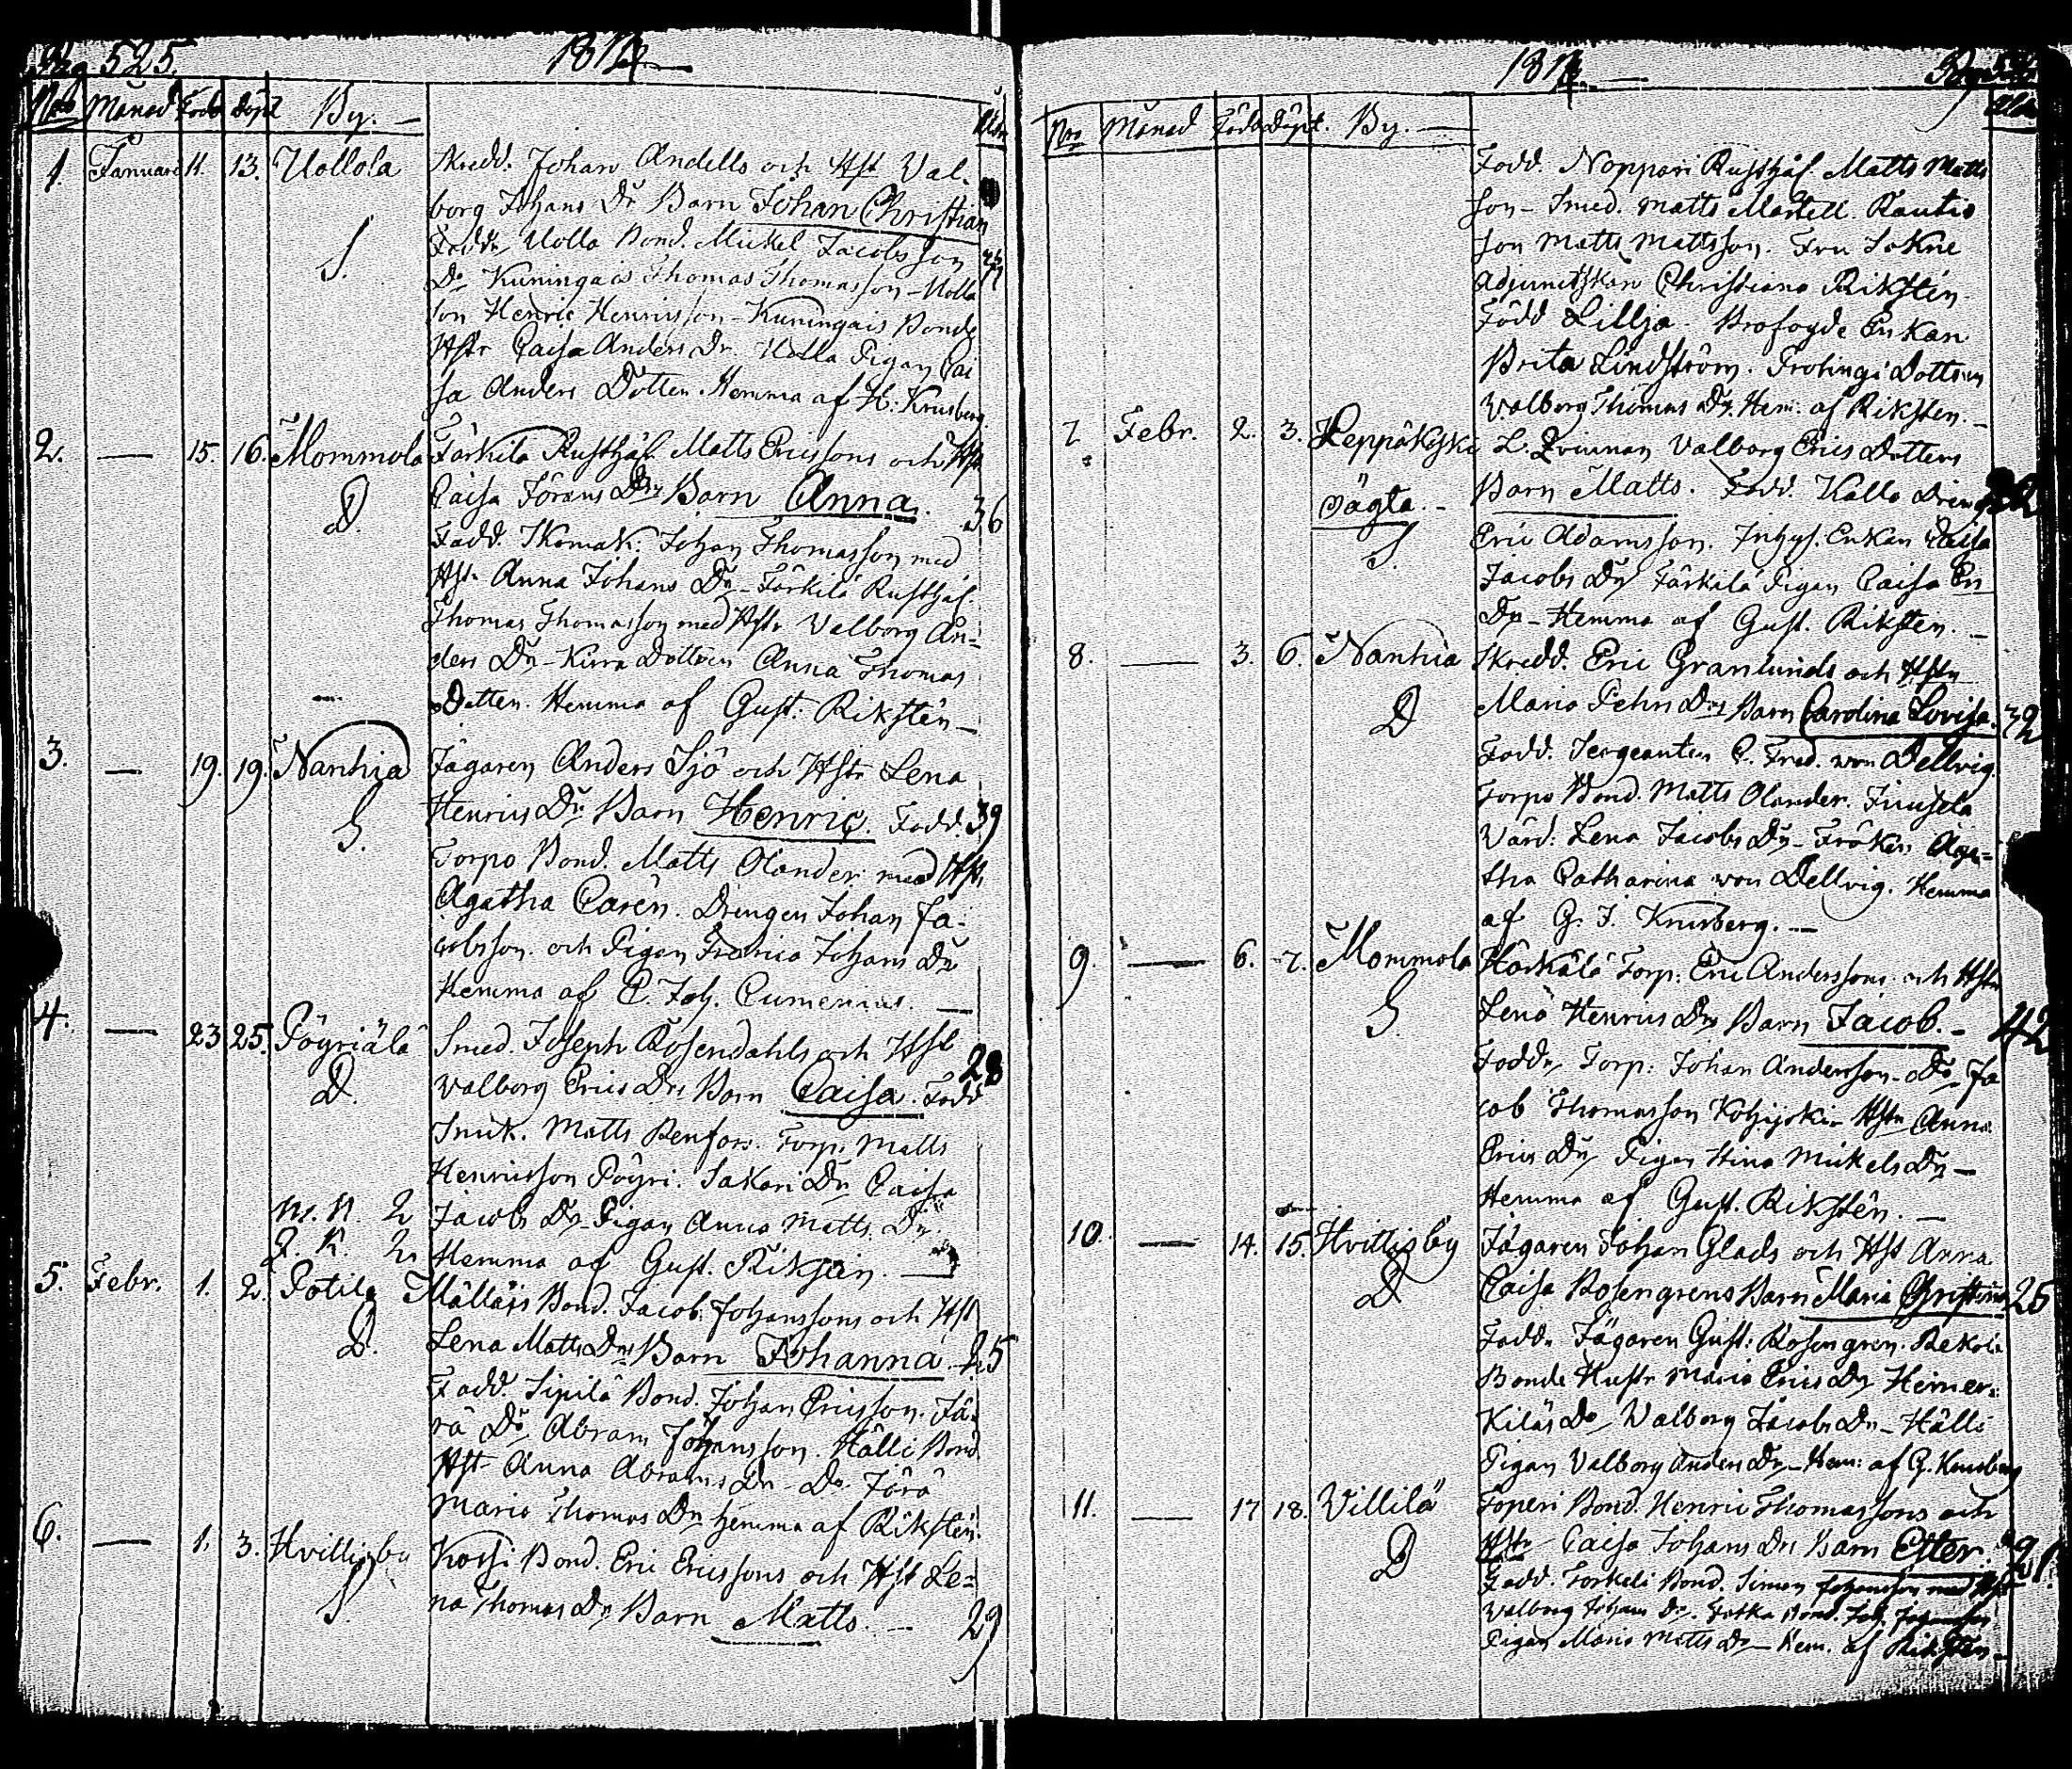 Pag 525. 1814
Nro Månad Född Döpt By. Ålder
1. Januari 11. 13. Uollola Skredd. Johan Andells och Hst Val-
borg Johans Dr Barn Johan Christian
S. Fadd. Uolla Bond. Mickel Jacobsson
Do Kuningais Thomas Thomasson - Uolla
son Henric Henricsson - Kuningais Bonde
Hstr Caisa Anders Dr. Uolla Pigan Cai
sa Anders Dotter. Hemma af H: Krusberg.
2. — 15. 16. Mommola Järkilä Rusthål. Matts Ericssons och Hst
D. Caisa Görans Drs Barn Anna. 36
Fadd. Skomak: Johan Thomasson med
Hstr Anna Johans Dr - Järkilä Rusthål.
Thomas Thomasson med Hstr Valborg An-
ders Dr - Kirra Dottren Anna Thomas
Dotter. Hemma af Gust: Rikstén —
3. — 19. 19. Nanhia Jägaren Anders Sjö och Hstr Lena
G. Henrics Dr Barn Henric. Fadd. 39
Torpo Bond. Matts Olander med Hstr
Agatha Carén. Drengen Johan Ja-
cobsson. och Pigan Fredrica Johans Dr
Hemma af C. Joh. Cumenius. —
4. — 23 25. Pöyriälä Smed. Joseph Rosendahls och Hst 28
D. Valborg Erics Drs Barn Caisa. Fadd
Snik. Matts Renfors. Torp. Matts
Henricsson Pöyri. Sakari Dr Caisa
M. N. 2 Jacobs Dr - Pigan Anna Matts Dr.
Q. K. 2 Hemma af Gust. Rikstén. —
5. Febr. 1. 2. Potila Mälläis Bond. Jacob Johanssons och Hst
D. Lena Matts Drs Barn Johanna. 25
Fadd. Sipilä Bond. Johan Ericsson. Jä-
rä Do Abram Johansson. Hälli Bond
Hst Anna Abrams Dr - Do Järä
Maria Thomas Dr hemma af Rikstén.
6. — 1. 3. Hvittisby Kossi Bond. Eric Ericssons och Hst Le-
S. na Thomas Dr Barn Matts. — 29
1814. —
Nro Månad Född Döpt. By. —
Fadd. Noppari Rusthål. Matts Matts
son - Smed. Matts Martell. Rautio
son Matts Mattsson. Fru Sokne
Adjunctskan Christiana Rikstén
Född Lillja. Brofogde Enkan
Brita Lindström. Prolingi Dottren
Valborg Thomas Dr. Hem: af Rikstén. —
7. Febr. 2. 3. Keppåkoski L. Qvinnan Valborg Erics Dotters
Tägta. — Barn Matts. Fadd. Kallo Dreng 22
S. Eric Adamsson. Inhys. Enkan Caisa
Jacobs Dr Järkilä Pigan Caisa Er
Dr - Hemma af Gust. Rikstén. —
8. — 3. 6. Nanhia Skredd. Eric Granlunds och Hstr
D Maria Pehrs Drs Barn Carolina Lovisa. 32
Fadd. Sergeanten C. Fred. von Dellvig.
Torpo Bond. Matts Olander. Fiuusela
Värd: Lena Jacobs Dr - Fröken Aga-
tha Catharina von Dellvig. Hemma
af G. J. Krusberg. —
9. — 6. 7. Mommola Härkälä Torp. Eric Anderssons och Hstr
G. Lena Henrics Drs Barn Jacob. — 42
Fadd. Torp: Johan Andersson - Do Ja
cob Thomasson Kohijoki - Hstr Anna
Erics Dr Pigan Stina Mickels Dr —
Hemma af Gust. Rikstén. —
10. — 14. 15. Hvittisby Jägaren Johan Glads och Hst Anna
D Caisa Rosengrens Barn Maria Christina 25
Fadd. Jägaren Gust: Rosengren. Rekola
Bonde Hustr Maria Erics Dr Heimer-
Kiläs Do Valborg Jacobs Dr - Hälli
Pigan Valborg Anders Dr - Hem: af G. Krusberg
11. — 17 18. Villilä Toperi Bond. Henric Thomassons och
D Hstr Caisa Johans Drs Barn Ester. 21.
Fadd. Torkeli Bond. Simon Johansson med Hst
Valborg Johans Dr. Jotka Bond. Joh. Johansson
Pigan Maria Matts Dr - Hem. af Rikstén —